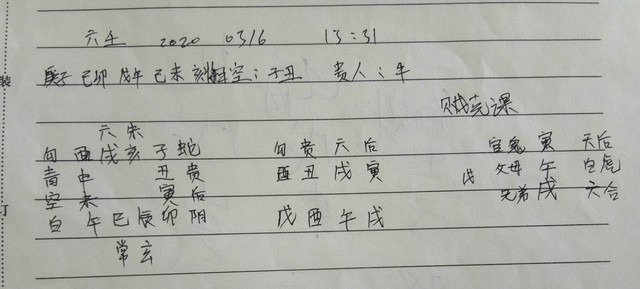 六壬 2020 0316 13:31
庚子 己卯 戊午 己未 空:子丑 贵人:牛
贼克课
六 朱
勾 酉 戌 亥 子 蛇 勾 贵 六 后 官鬼 寅 天后
青 申 丑 贵 酉 丑 戌 寅 戊 父母 午 白虎
空 未 寅 后 兄弟 戌 六合
白 午 巳 辰 卯 阴 戊 酉 午 戌
常 玄
装
订